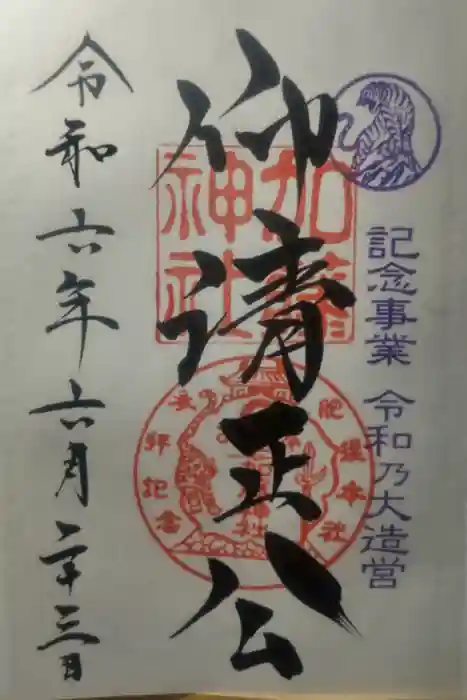 記念事業 令和乃大造営
仰清正公
加藤
神社
肥後本社
参拝記念
令和六年六月二十三日